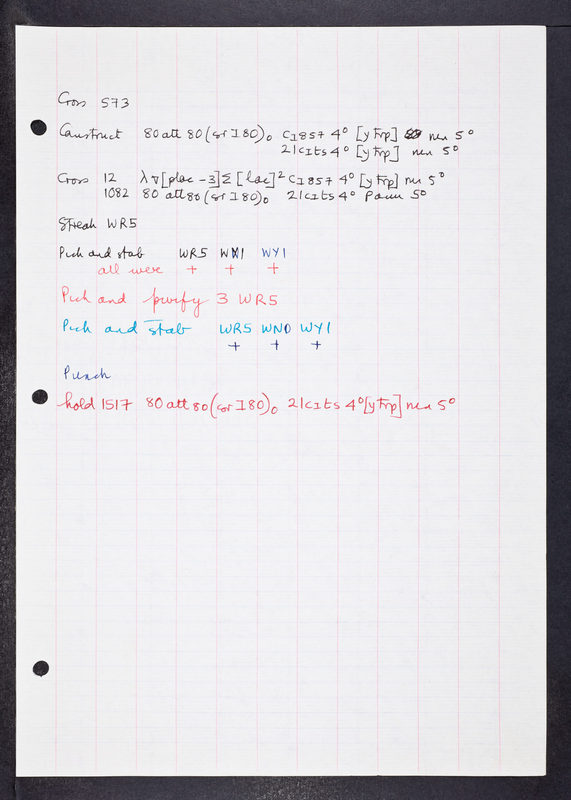 Cross 573
Construct 80 att 80 (sr I 80)₀ CI857 4⁰ [y Trp] nen 5⁰
21 cIts 4⁰ [y Trp] nen 5⁰
Cross 12 λ∇[plac -3] Σ [lac]² CI857 4⁰ [y Trp] nen 5⁰
1082 80 att 80 (sr I 80)₀ 21 cIts 4⁰ 5⁰
Streak WR5
Pick and stab WR5 WY1
all were + + +
Pick and purify 3 WR5
Pick and stab WR5 WN0 WY1
+ + +
Punch
hold 1517 80 att 80 (sr I 80)₀ 21 cIts 4⁰ [y Trp] nen 5⁰